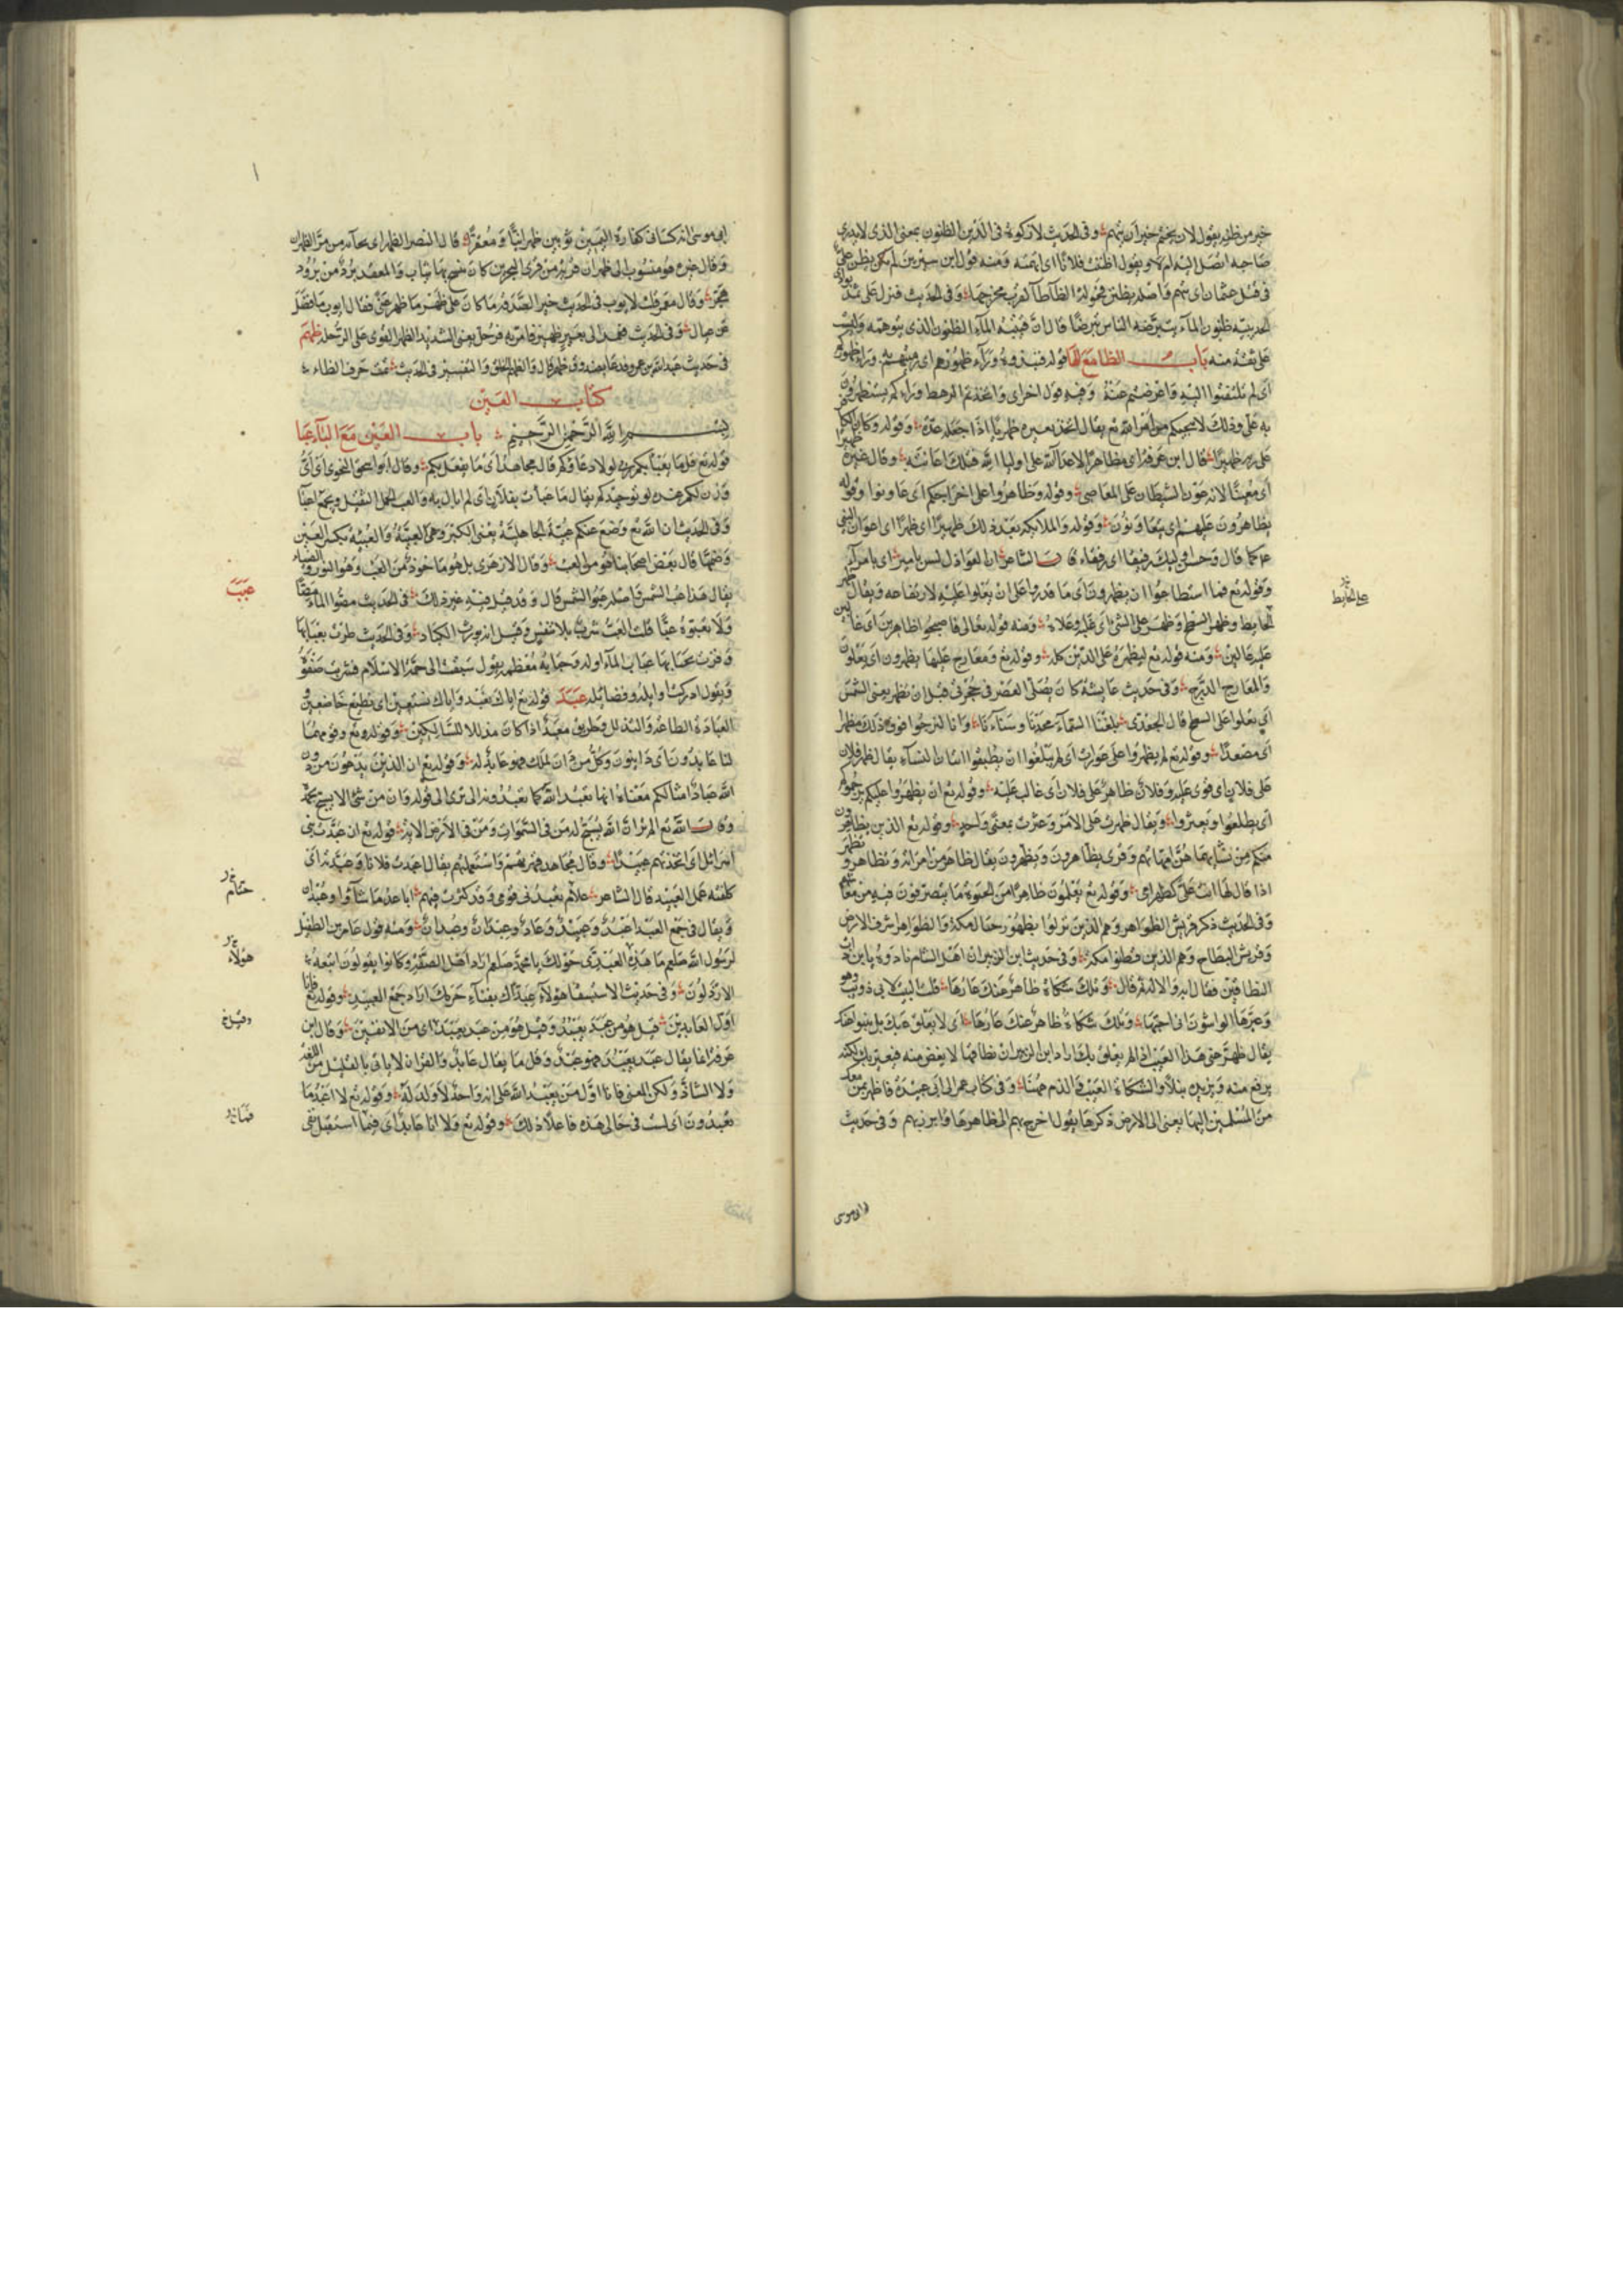 خير من ظنه يقول لان يختم خير ان يتهم وفى الحديث لا زكوة فى الدين الظنون بمعنى الذى لا يدرى
صاحبه ايصل اليه ام لا هو يقول اظننت فلانا اى اتهمته ومنه قول ابن سيرين لم يكن يظن على
فى قتل عثمان اى يتهم واصله يظتن فحولة الظاء طاء لقرب مخرجهما وفى الحديث فنزل على ثمد بوادى
الحديبية ظنون الماء يتبرضه الناس تبرضا قال القتيبى الماء الظنون الذى تتوهمه ولست
على ثقة منه باب الظا مع الها قوله فنبذوه وراء ظهورهم اى رميتم به وراء ظهوركم
اى لم تلتفتوا اليه واعرضتم عنه وفيه قول اخراى واتخذتم الرهط وراءكم يستظهرون
به على وذلك لا ينجيكم من امر الله تع يقال اتخذ بعيره ظهريا اذا جعله عدة وقوله وكان الكافر
على ربه ظهيرا قال ابن عرفة اى مظاهرا لاعداء الله على اوليا الله فتلك اعانته وقال غيره
اى معينا لانه عون للشيطان على المعاصى وقوله وظاهروا على اخراجكم اى عاونوا وقوله
يظاهرون عليهم اى يتعاونون وقوله والملائكة بعد ذلك ظهيرا اى ظهرا اى اعوان النبى
عم كما قال وحسن اولئك رفيقا اى رفقاء قال الشاعر ان العواذل ليس لى بامير اى بامراء
وقوله تع فما اسطاعوا ان يظهروه اى ما قدروا على ان يعلوا عليه لارتفاعه ويقال ظهر
الحايط وظهر السطح وظهر على الشئ اى غلبه وعلاه ومنه قوله تعالى فاصبحوا ظاهرين اى غالبين
على الحائط
عليه عالين ومنه قوله تع ليظهره على الدين كله وقوله تع ومعارج عليها يظهرون اى يعلون
والمعارج الدرج وفى حديث عايشة كان يصلى العصر فى حجرتى قبل ان تظهر يعنى الشمس
اى تعلوا على السطح قال الجعدى بلغنا السماء مجدنا وسناءنا وانا لنرجوا فوق ذلك مظهرا
اى مصعدا وقوله تع لم يظهروا على عورات اى لم يبلغوا ان يطيقوا اتيان النساء يقال ظهر فلان
على فلان اى قوى عليه وفلان ظاهر على فلان اى غالب عليه وقوله تع ان يظهروا عليكم يرجموكم
اى يطلعوا ويعثروا ويقال ظهرت على الامر وعثرت بمعنى واحد وقوله تع الذين يظاهرون
منكم من نسائهم ما هن امهاتهم وقرى يظاهرون ويظهرون يقال ظاهر من امراته وتظاهر وتظهر
اذا قال لها انت على كظهر امى وقوله تع يعلمون ظاهرا من الحيوة ما يتصرفون فيه من معايشهم
وفى الحديث ذكر قريش الظواهر وهم الذين نزلوا بظهور جبال مكة والظواهر اشرف الارض
وقريش البطاح وهم الذين قطنوا مكة وفى حديث ابن الزبير ان اهل الشام نادوه يا ابن ذات
النطاقين فقال ايه والاله ثم قال وتلك شكاة ظاهر عنك عارها قلت البيت لابى ذويب وهو
وعيرها الواشون انى احبها وتلك شكاة ظاهر عنك عارها اى لا يعلق عنك بل ينبوا عنك
يقال ظهر عنى هذا العيب اذا لم يعلق بك اراد ابن الزبير ان نطاقها لا يغض منه فيعير به لكنه
يرفع منه ويزيده نبلا والشكاة العيب والذم ههنا وفى كتاب عمر الى ابى عبيدة فاظهر بمن معك
من المسلمين اليها يعنى الى الارض ذكرها يقول اخرج بهم الى ظاهرها وابرز بهم وفى حديث
ابى موسى
ابى موسى انه كسا فى كفارة اليمين ثوبين ظهرانيا ومعقدا قال النضر الظهرانى يجآء به من مر الظهران
وقال غيره هو منسوب الى ظهران قرية من قرى البحرين كان ينسج بها ثياب والمعقد برد من برود
هجر وقال معمر قلت لايوب فى الحديث خير الصدقة ما كان على ظهر ما ظهر غنى فقال ايوب ما فضل
عن عيال وفى الحديث فعمد الى بعير ظهير فامر به فرحل يعنى الشديد الظهر القوى على الرحلة ظهم
فى حديث عبد الله بن عمرو فدعا بصندوق ظهم قال والظهم الخلق والتفسير فى الحديث تمت حرف الظاء
كتاب العين
بسم الله الرحمن الرحيم باب العين مع الباء عبا
قوله تع قل ما يعبأ بكم ربى لولا دعاؤكم قال مجاهد اى ما يفعل بكم وقال ابو اسحق النحوى اى اى
وزن لكم عنده لولا توحيدكم يقال ما عبأت بفلان اى لم ابال به والعبء الحمل الثقيل ويجمع اعبآ
وفى الحديث ان الله تع وضع عنكم عبية الجاهلية يعنى الكبر وهى العبية والعبية بكسر العين
وضمها قال بعض اصحابنا هو من العبء وقال الازهرى بل هو ماخوذ من العب وهو النور والضياء
عبب
يقال هذا عب الشمس واصله عبو الشمس قال وقد قيل فيه غير ذلك فى الحديث مصوا الماء مصا
ولا تعبوه عبا قلت العب شرب بلا تنفس وقيل انه يورث الكباد وفى الحديث طرت بعبابها
وفزت بحبابها عباب الماء اوله وحبابه معظمه يقول سبقت الى جمة الاسلام فشربت صفوه
ويقول ادركت اوايله وفضايله عبد قوله تع اياك نعبد واياك نستعين اى نطيع خاضعين و
العبادة الطاعة والتذلل وطريق معبد اذا كان مذللا للسالكين وقوله تع وقومهما
لنا عابدون اى داينون وكل من دان لملك فهو عابد له وقوله تع ان الذين يدعون من دون
الله عباد امثالكم معناه انها تعبد الله كما تعبدونه الا ترى الى قوله وان من شئ الا يسبح بحمده
وقال الله تع الم تر ان الله يسبح له من فى السموات ومن فى الارض الاية قوله تع ان عبدت بنى
اسرائل اى اتخذتهم عبيدا وقال مجاهد قهرتهم واستعملتهم يقال اعبدت فلانا وعبدته اى
كلفته عمل العبيد قال الشاعر علام يعبدنى قومى وقد كثرت فيهم اباعر ما شاؤا وعبدان
حتام
ويقال فى جمع العبد اعبد وعبيد وعباد وعبدان وعبدان ومنه قول عامر بن الطفيل
لرسول الله صلعم ما هذه العبدى حولك يا محمد صلعم اراد اهل الصفة وكانوا يقولون اتبعه
هؤلاء
الارذلون وفى حديث الاستسقا هؤلاء عبداك بفناء حرمك اراد جمع العبيد وقوله تع فانا
اول العابدين قيل هو من عبد يعبد وقيل هو من عبد يعبد اى من الانفين وقال ابن
وقيل
عرفة انما يقال عبد يعبد فهو عبد وقل ما يقال عابد والقران لا ياتى بالقليل من اللغة
ولا الشاذ ولكن المعنى فانا اول من يعبد الله على انه واحد لا ولد له وقوله تع لا اعبد ما
تعبدون اى لست فى حالى هذه فاعلا ذلك وقوله تع ولا انا عابد اى فيما استقبل نفى